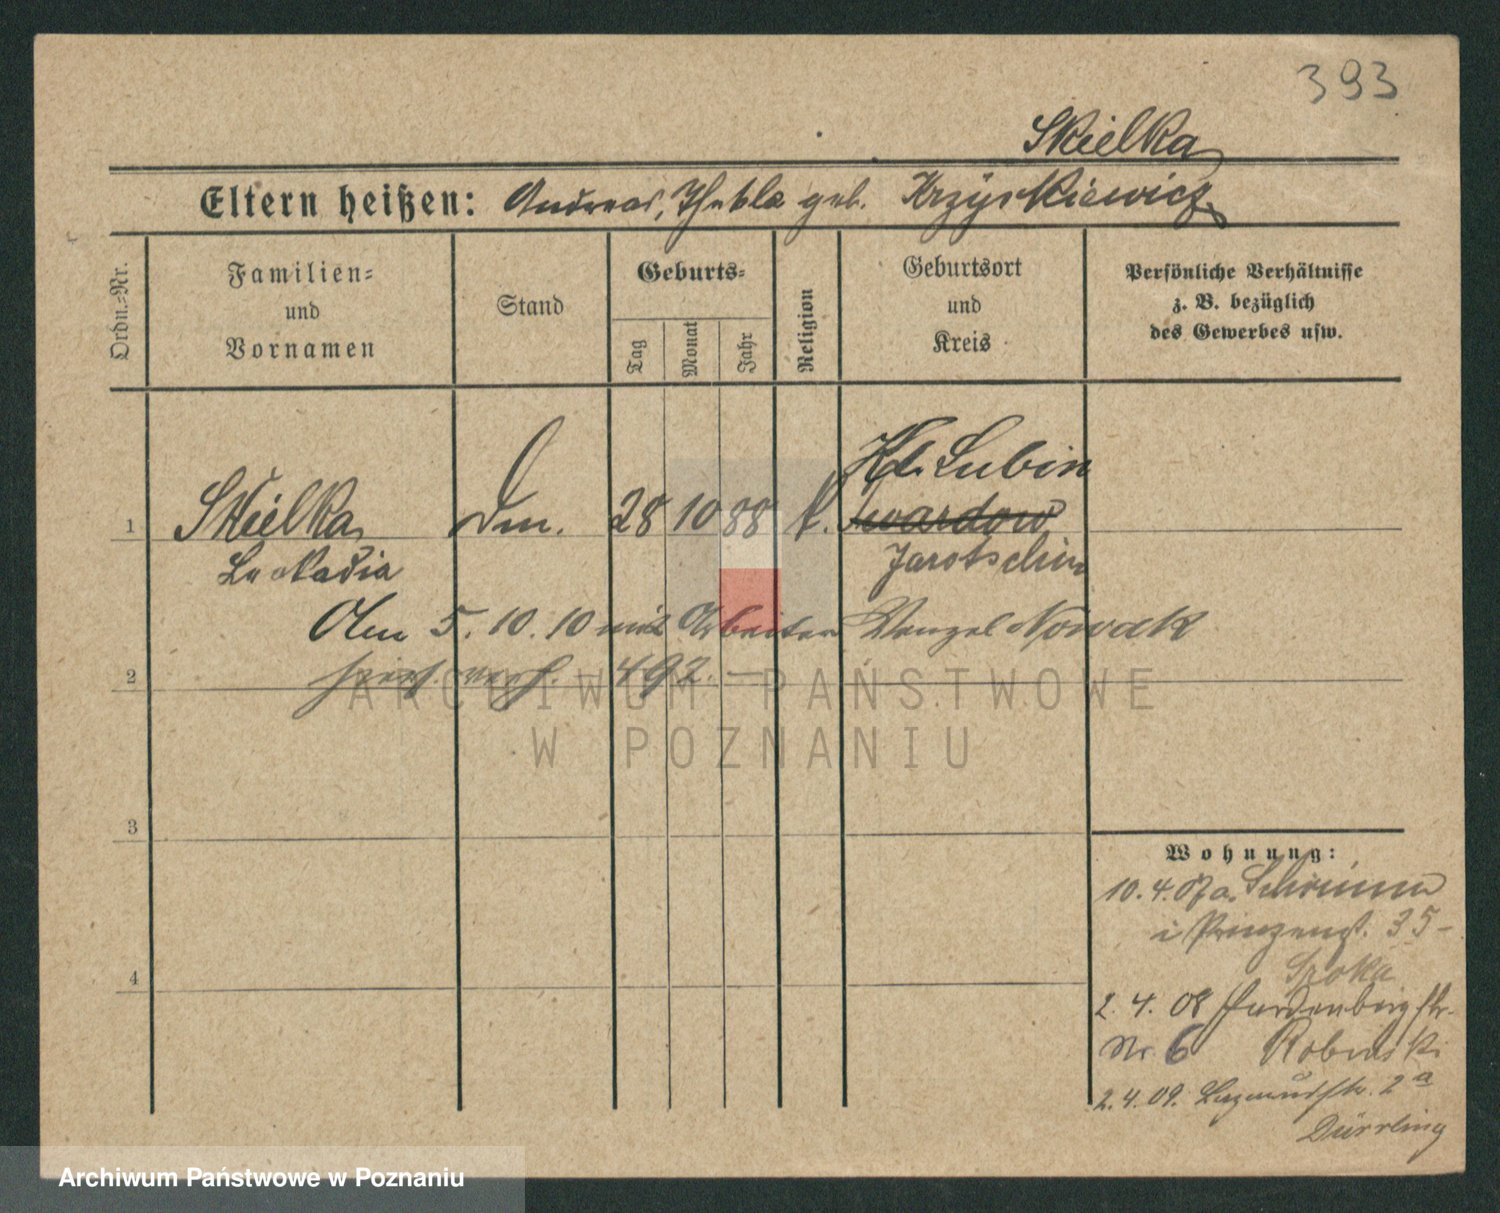 393
Skielka
Eltern heißen: Andreas, Thekla geb. Krzyskiewicz
Ordn.=Nr.
Familien=
und
Vornamen
Stand
Geburts=
Tag
Monat
Jahr
Religion
Geburtsort
und
Kreis
Persönliche Verhältnisse
z. B. bezüglich
des Gewerbes usw.
Kl. Lubin
1 Skielka Dm. 28 10 88 k. Twardow
Leokadia Jarotschin
Am 5. 10. 10 mit Arbeiter Wenzel Nowak
2 hier verh. 492. —
ARCHIWUM PAŃSTWOWE
W POZNANIU
3
Wohnung:
10. 4. 07 a. Schrimm
4
i Prinzenst. 35 –
2. 4. 08 Hardenbergstr.
Nr. 6 Robinski
2. 4. 09. 2a
Dürrling
Archiwum Państwowe w Poznaniu